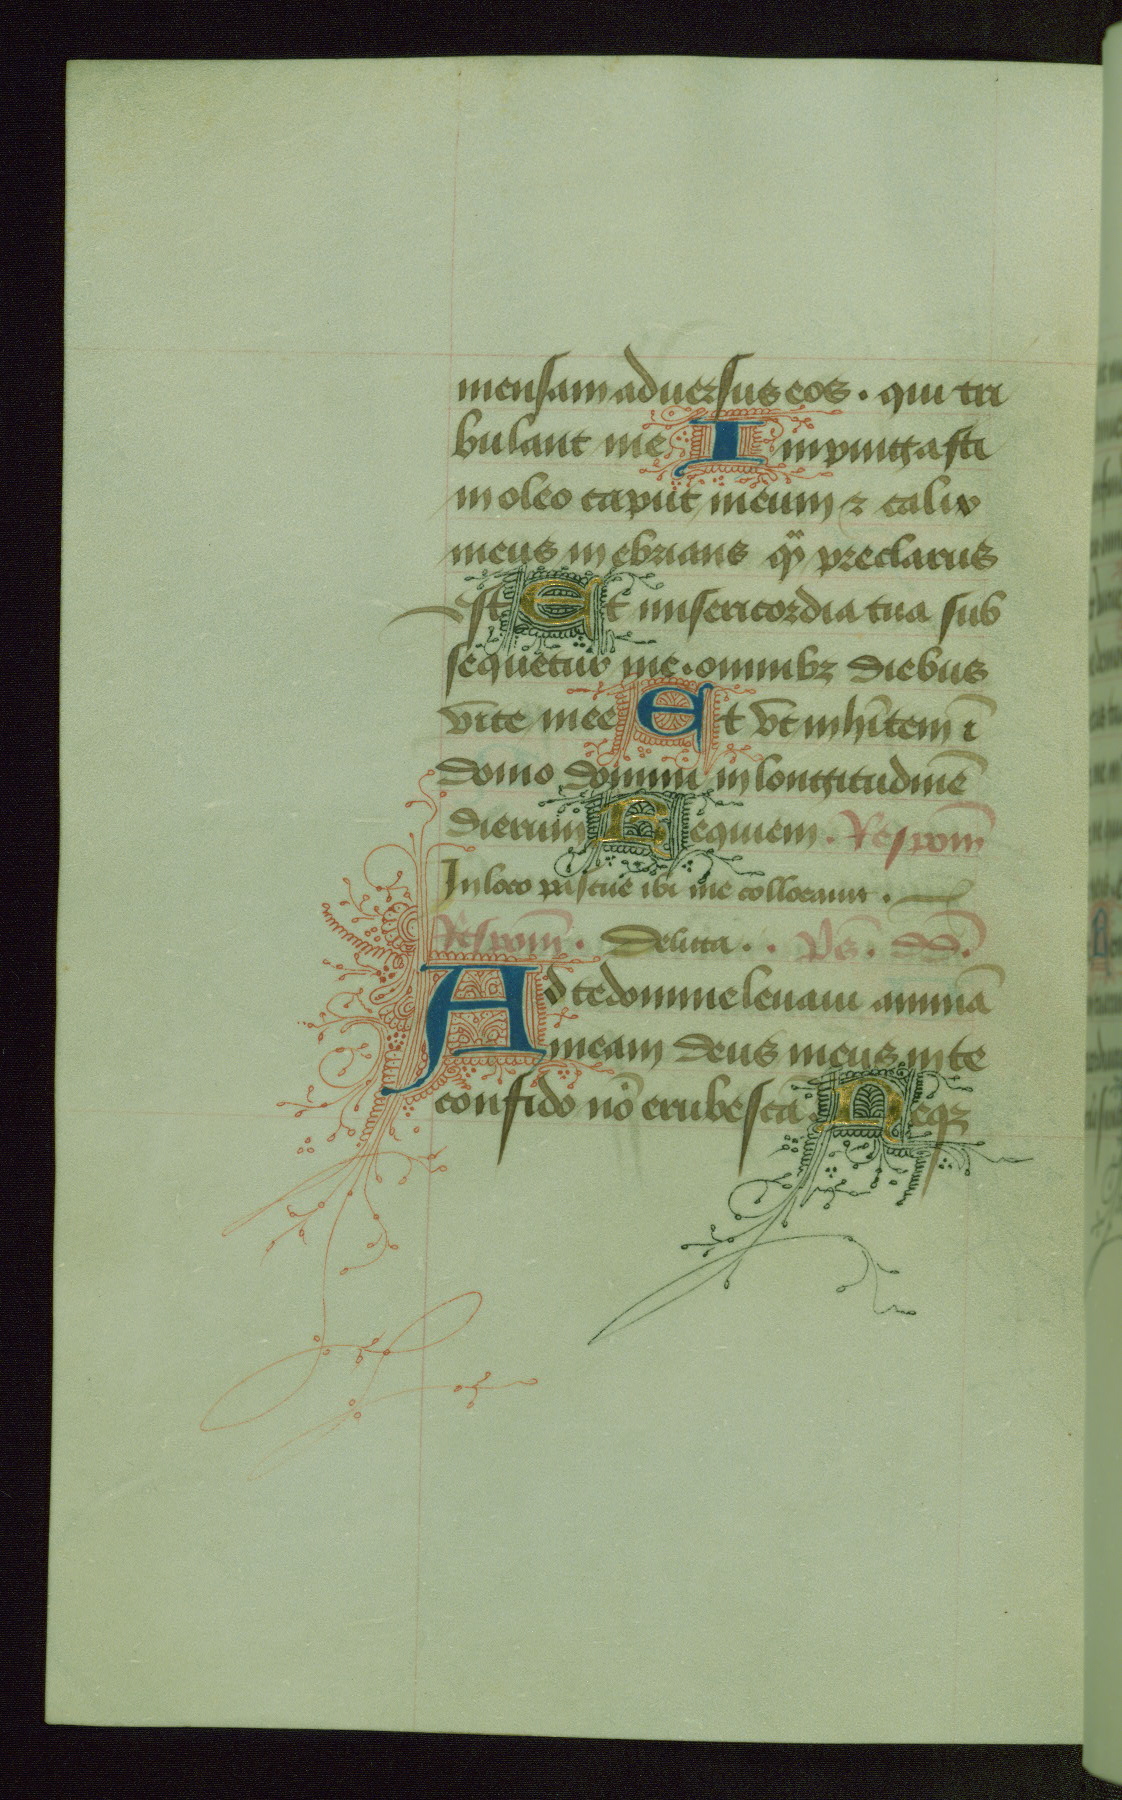 mensam aduersus eos . qui tri
bulant me Inpinguasti
in oleo caput meum ⁊ calix
meus inebrians q̄ preclarus
est Et misericordia tua sub
sequetur me . omnibꝫ diebus
vite mee Et vt inhītem ī
domo domini in longitudinē
dierum Requiem . Respom̄
In loco pascue ibi me collocauit .
Respom̄ . Delicta . . Ps̄ . dd̄ .
Ad te domine leuaui animā
meam deus meus in te
confido nō erubescā Neqꝫ